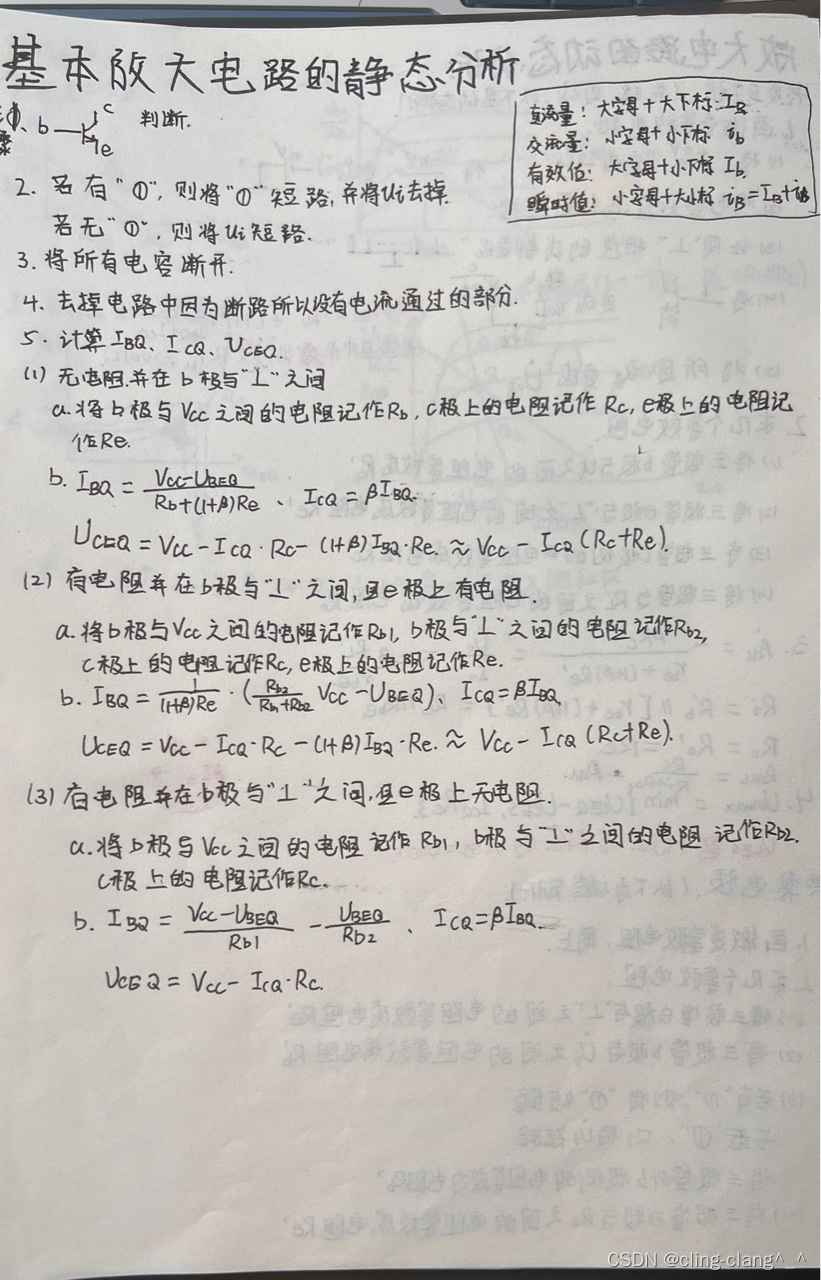 基本放大电路的静态分析
直流量：大字母+大下标：I_B
交流量：小字母+小下标 i_b
有效值：大字母+小下标 I_b.
瞬时值：小字母+大小标 i_B=I_B+i_b
b c e 判断.
2. 若有"①"，则将"①"短路，并将Ui去掉.
若无"①"，则将Ui短路.
3. 将所有电容断开.
4. 去掉电路中因为断路所以没有电流通过的部分.
5. 计算 I_BQ、I_CQ、U_CEQ.
(1) 无电阻并在b极与"⊥"之间
a. 将b极与Vcc之间的电阻记作Rb，c极上的电阻记作Rc，e极上的电阻记
作Re.
b. I_BQ = (Vcc-U_BEQ)/(Rb+(1+β)Re)、I_CQ=βI_BQ.
U_CEQ = Vcc-I_CQ·Rc-(1+β)I_BQ·Re. ≈ Vcc-I_CQ(Rc+Re).
(2) 有电阻并在b极与"⊥"之间，且e极上有电阻.
a. 将b极与Vcc之间的电阻记作Rb1, b极与"⊥"之间的电阻记作Rb2,
c极上的电阻记作Rc, e极上的电阻记作Re.
b. I_BQ = 1/((1+β)Re)·(Rb2/(Rb1+Rb2) Vcc-U_BEQ)、I_CQ=βI_BQ
U_CEQ = Vcc-I_CQ·Rc-(1+β)I_BQ·Re. ≈ Vcc-I_CQ(Rc+Re).
(3) 有电阻并在b极与"⊥"之间，且e极上无电阻.
a. 将b极与Vcc之间的电阻记作Rb1，b极与"⊥"之间的电阻记作Rb2.
c极上的电阻记作Rc.
b. I_BQ = (Vcc-U_BEQ)/Rb1 - U_BEQ/Rb2、I_CQ=βI_BQ
U_CEQ = Vcc-I_CQ·Rc.
CSDN @cling-clang^_^